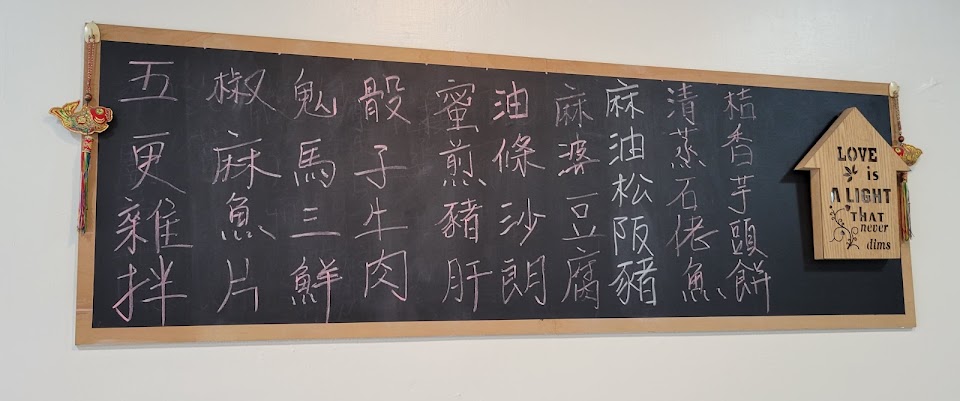 五更雜拌
椒麻魚片
鬼馬三鮮
骰子牛肉
蜜煎豬肝
油條沙朗
麻婆豆腐
麻油松阪豬
清蒸石佬魚
桔香芋頭餅
LOVE
is
A LIGHT
THAT
never
dims